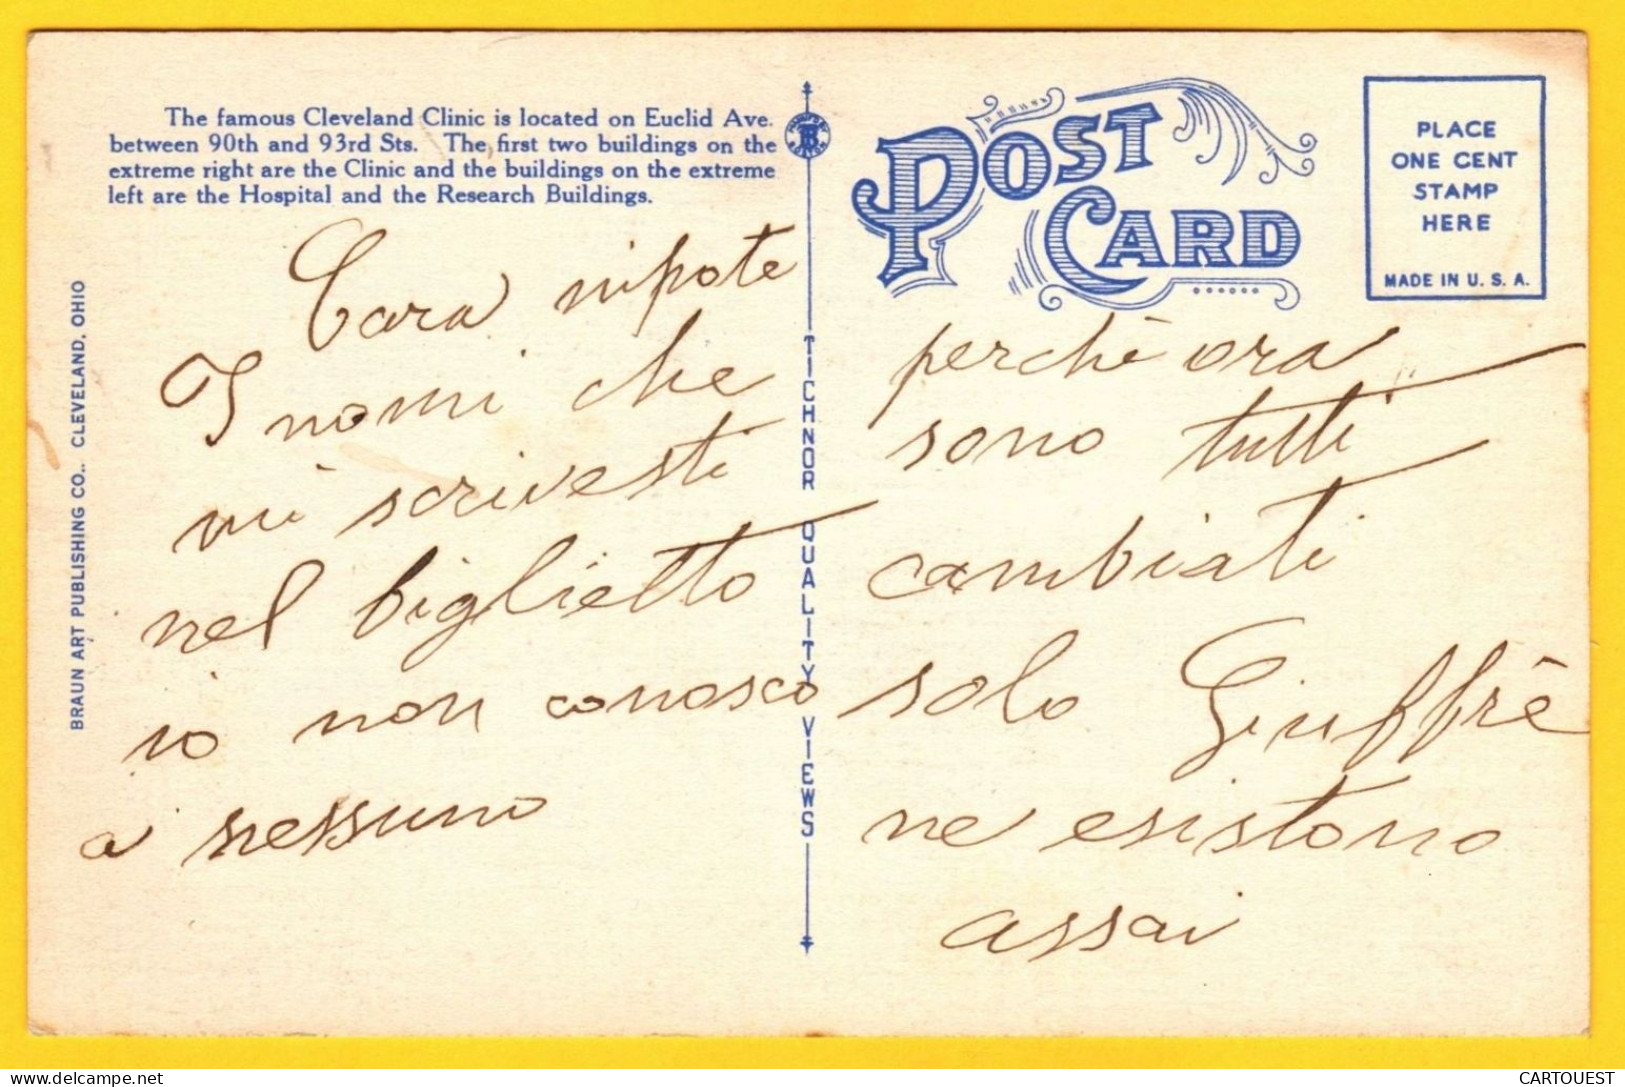 The famous Cleveland Clinic is located on Euclid Ave.
between 90th and 93rd Sts. The first two buildings on the
extreme right are the Clinic and the buildings on the extreme
left are the Hospital and the Research Buildings.
Cara nipote
I nomi che
mi scrivesti
nel biglietto
io non conosco
a nessuno
BRAUN ART PUBLISHING CO., CLEVELAND, OHIO
TICHNOR QUALITY VIEWS
POST
CARD
PLACE
ONE CENT
STAMP
HERE
MADE IN U. S. A.
perchè ora
sono tutti
cambiati
solo Giuffrè
ne esistono
assai
CARTOUEST